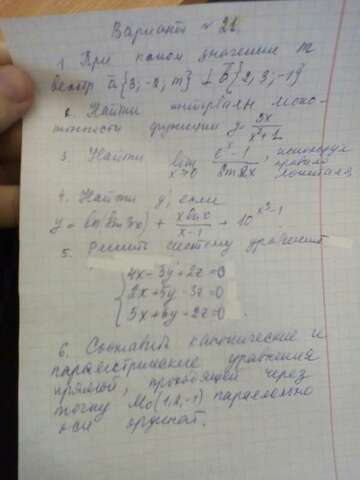 Вариант № 21.
1. При каком значении m
вектор a{3,-2,m} ⊥ b{2;3;-1}
2. Найти интервалы моно-
тонности функции y=3x/(x²+1)
3. Найти lim x→0 (eˣ-1)/(sin2x), используя правило Лопиталя.
4. Найти y', если
y = ln(sin3x) + (x ln x)/(x-1) + 10^(x³-1)
5. Решить систему уравнений
4x-3y+2z=0
2x+5y-3z=0
5x+6y-2z=0
6. Составить канонические и
параметрические уравнения
прямой, проходящей через
точку M₀(1,2,-1) параллельно
оси ординат.